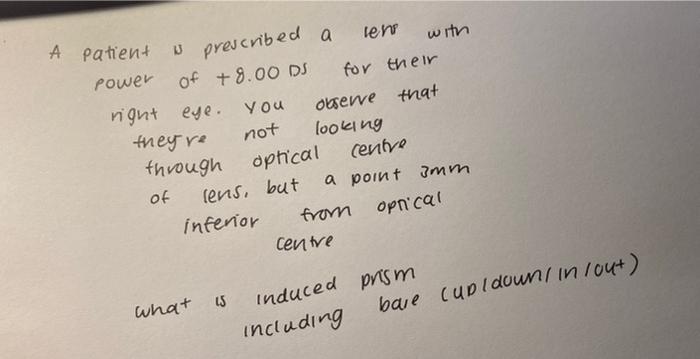 A patient is prescribed a lens with
power of +8.00 DS for their
right eye. You observe that
they're not looking
through optical centre
of lens, but a point 3mm
inferior from optical
centre
what is induced prism
including base (up/down/in/out)